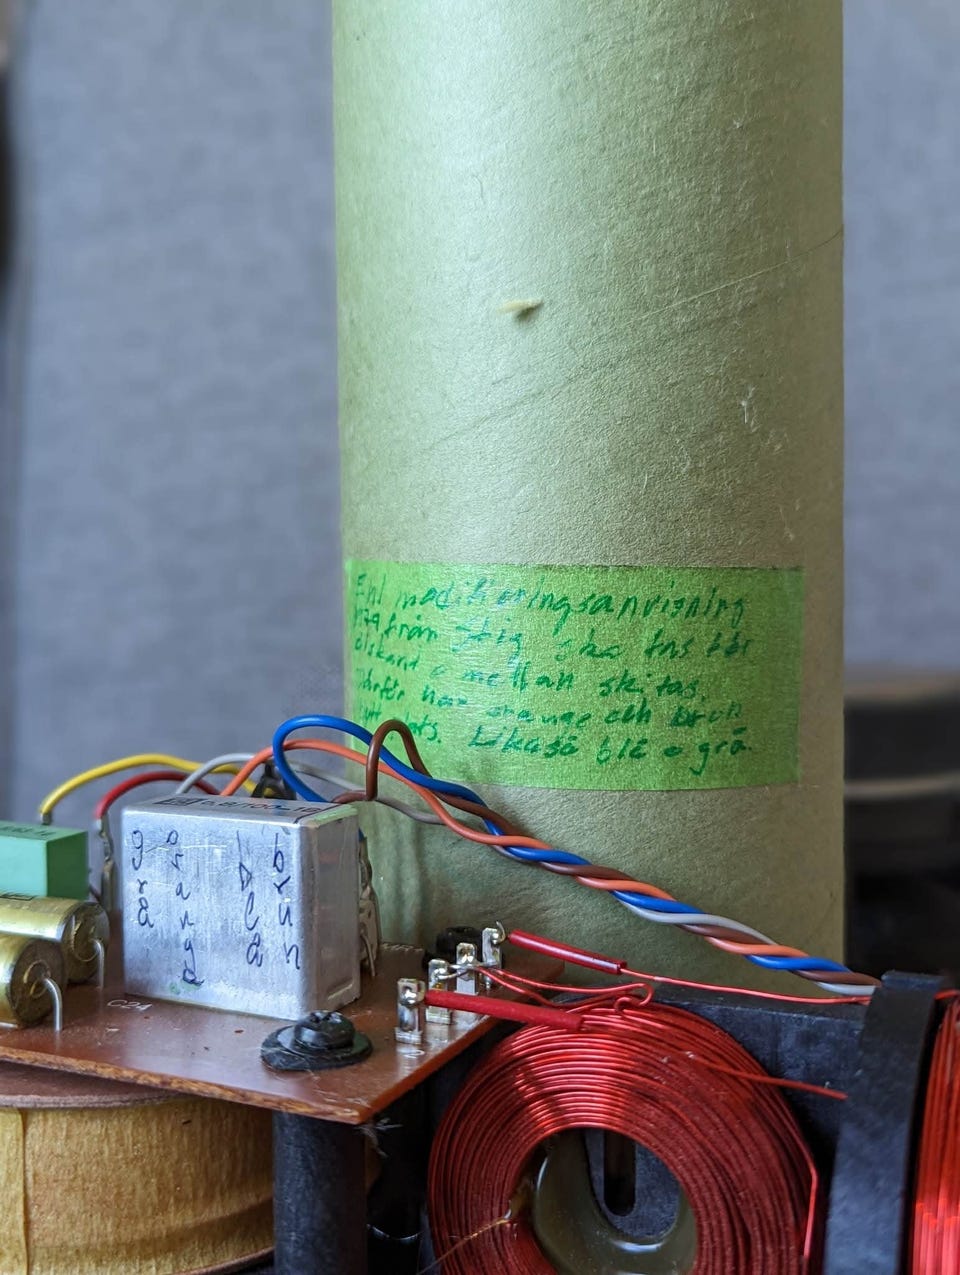 Enl modifieringsanvisning
1979 från Stig ska fas för
diskant o mellan skiftas,
därför har orange och brun
bytt plats. Likaså blå o grå.
grå
orange
blå
brun
C24